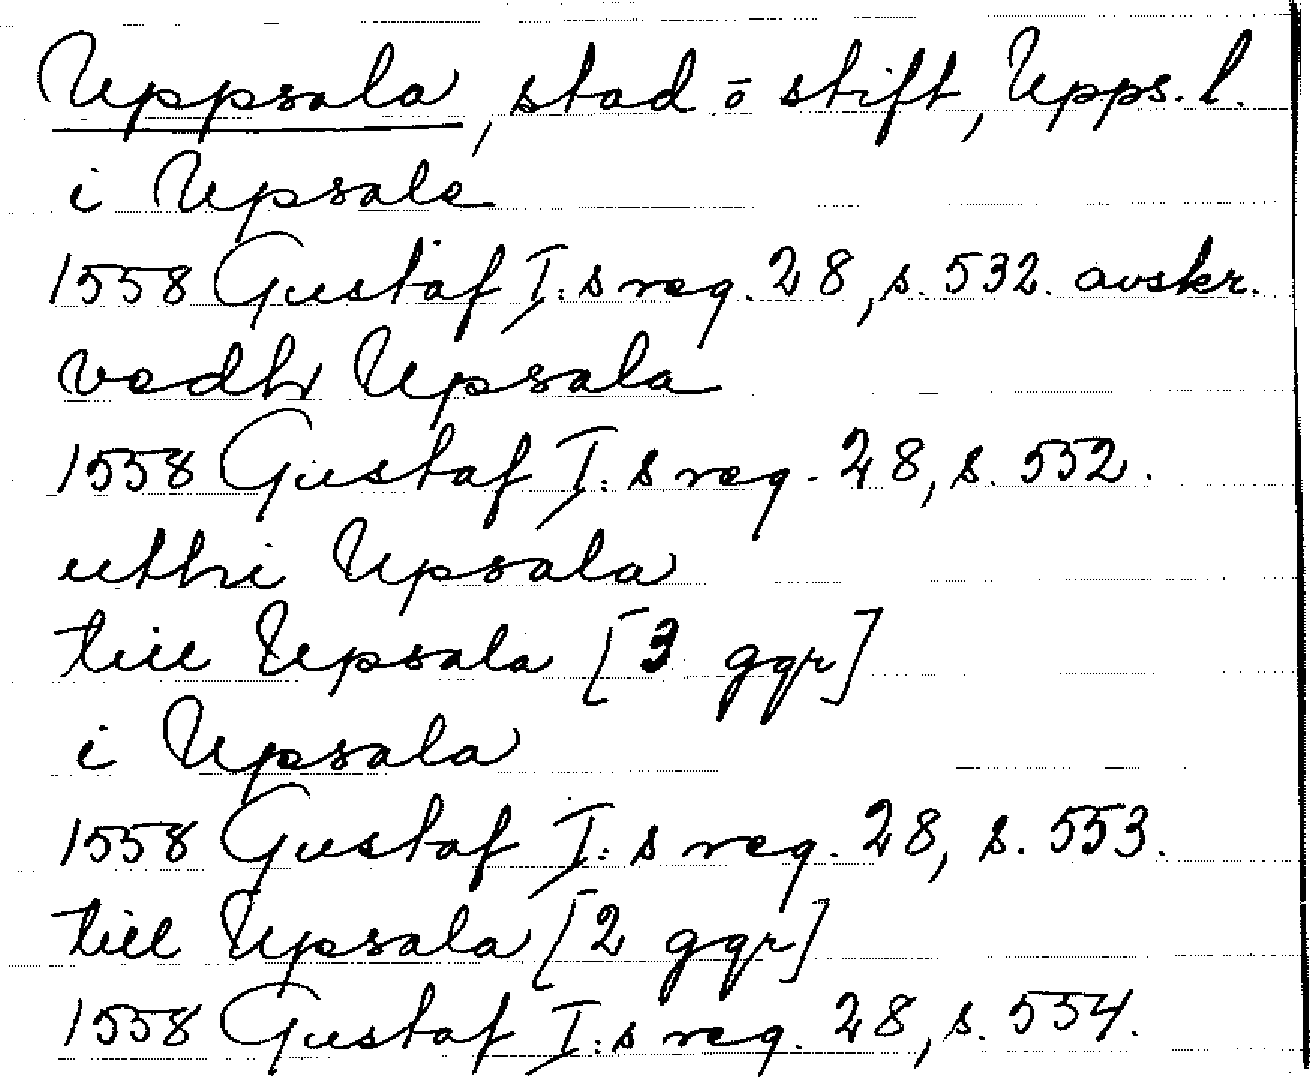 Uppsala, stad ō stift, Upps. l.
i Upsala
1558 Gustaf I:s reg. 28, s. 532. avskr.
vedh Upsala
1558 Gustaf I:s reg. 28, s. 552.
uthi Upsala
till Upsala [3 ggr]
i Upsala
1558 Gustaf I:s reg. 28, s. 553.
till Upsala [2 ggr]
1558 Gustaf I:s reg. 28, s. 554.